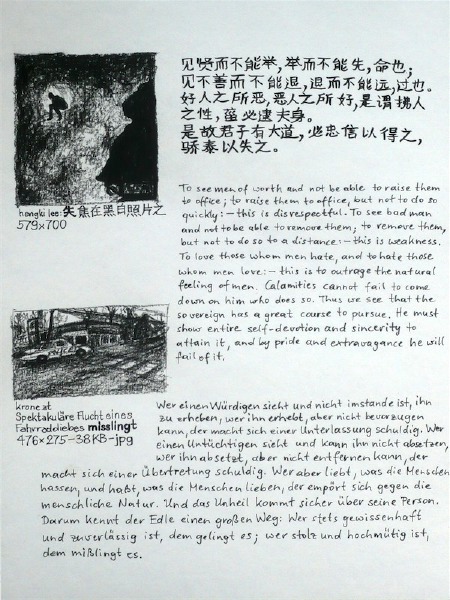 见贤而不能举,举而不能先,命也;
见不善而不能退,退而不能远,过也。
好人之所恶,恶人之所好,是谓拂人
之性,菑必逮夫身。
是故君子有大道,必忠信以得之,
骄泰以失之。
hongki lee: 失焦在黑白照片之
579x700
To see men of worth and not be able to raise them
to office; to raise them to office, but not to do so
quickly: — this is disrespectful. To see bad man
and not to be able to remove them; to remove them,
but not to do so to a distance: — this is weakness.
To love those whom men hate, and to hate those
whom men love: — this is to outrage the natural
feeling of men. Calamities cannot fail to come
down on him who does so. Thus we see that the
sovereign has a great course to pursue. He must
show entire self-devotion and sincerity to
attain it, and by pride and extravagance he will
fail of it.
krone.at
Spektakuläre Flucht eines
Fahrraddiebes misslingt
476x275-38KB-jpg
Wer einen Würdigen sieht und nicht imstande ist, ihn
zu erheben, wer ihn erhebt, aber nicht bevorzugen
kann, der macht sich einer Unterlassung schuldig. Wer
einen Untüchtigen sieht und kann ihn nicht absetzen,
wer ihn absetzt, aber nicht entfernen kann, der
macht sich einer Übertretung schuldig. Wer aber liebt, was die Menschen
hassen, und haßt, was die Menschen lieben, der empört sich gegen die
menschliche Natur. Und das Unheil kommt sicher über seine Person.
Darum kennt der Edle einen großen Weg: Wer stets gewissenhaft
und zuverlässig ist, dem gelingt es; wer stolz und hochmütig ist,
dem mißlingt es.